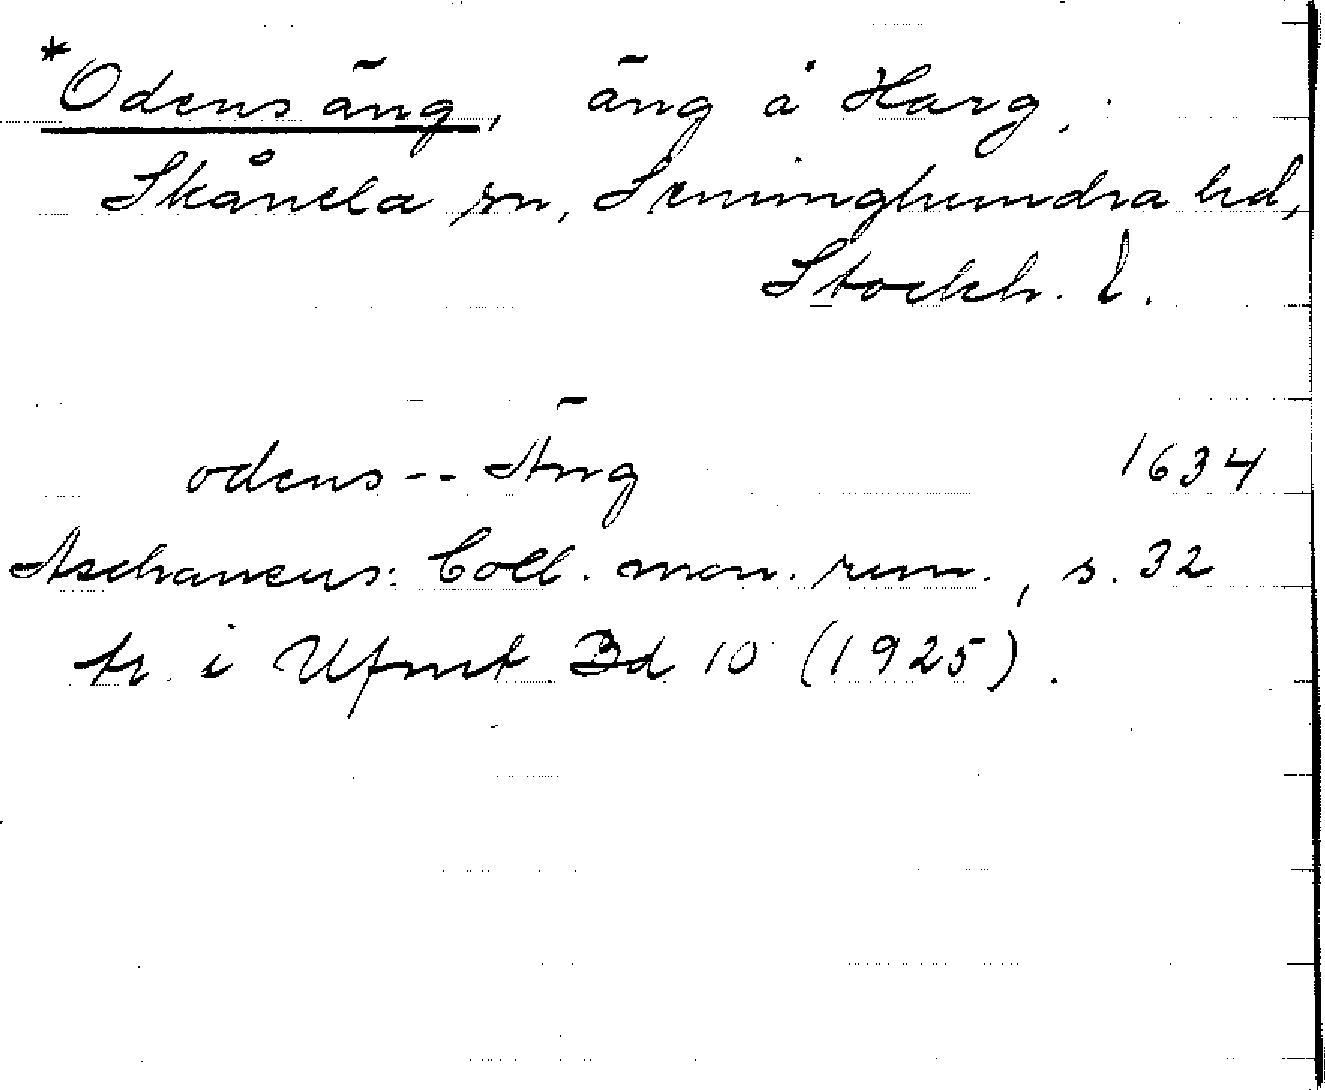 *Odens äng, äng å Harg,
Skånela sn, Seminghundra hd,
Stockh. l.
odens -- Äng 1634
Aschaneus: Coll. mon. run., s. 32
tr. i Ufmt Bd 10 (1925).